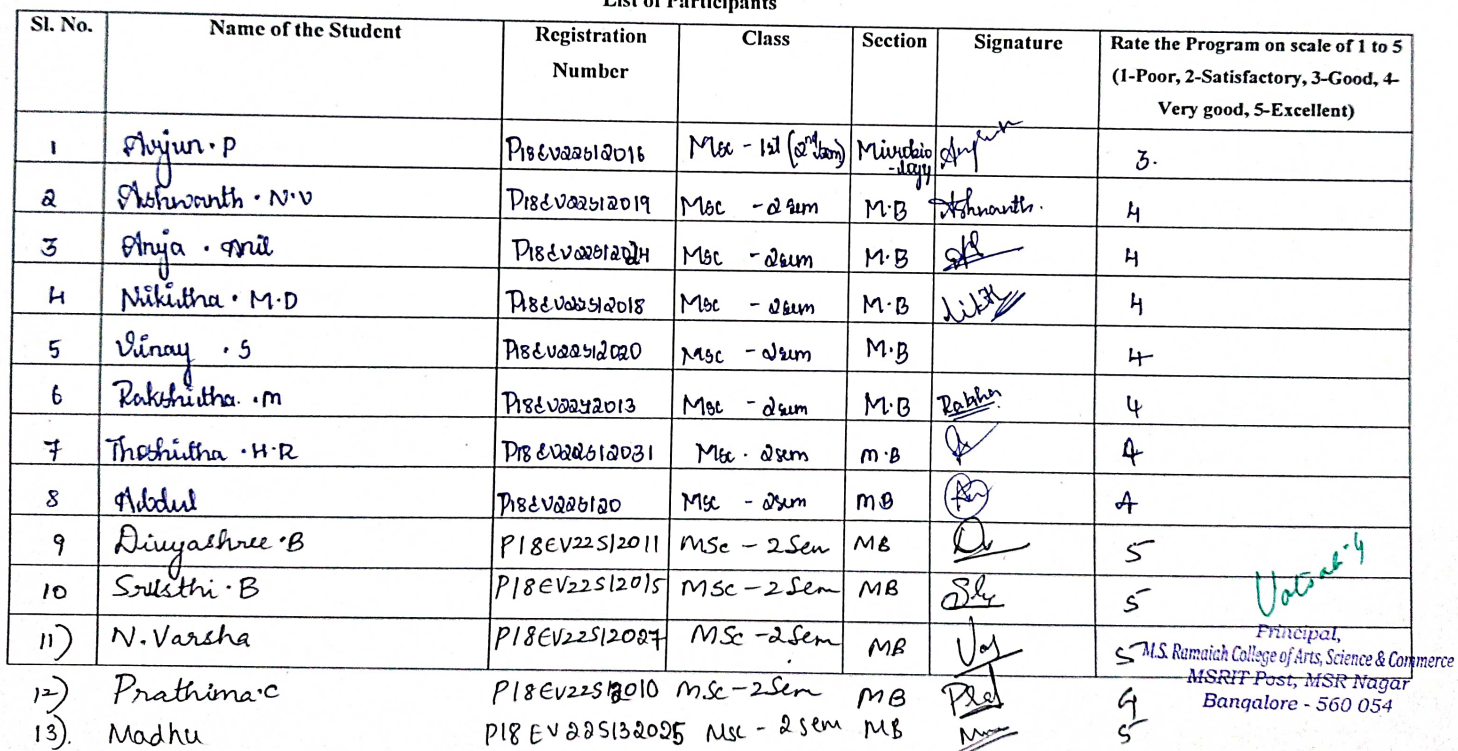 List of Participants
Sl. No. Name of the Student Registration Number Class Section Signature Rate the Program on scale of 1 to 5 (1-Poor, 2-Satisfactory, 3-Good, 4-Very good, 5-Excellent)
1 Arjun.P P18EV22S12016 Msc - 1st (2nd Sem) Microbio-logy Arjun 3.
2 Ashwanth.N.V P18EV22S12019 Msc - 2sem M.B Ashwanth. 4
3 Anja. Anil P18EV22S12024 Msc - 2sem M.B 4
4 Nikitha.M.D P18EV22S12018 Msc - 2sem M.B 4
5 Vinay.S P18EV22S12020 Msc - 2sem M.B 4
6 Rakshitha.M P18EV22S12013 Msc - 2sem M.B 4
7 Thoshitha.H.R P18EV22S12031 Msc. 2sem M.B 4
8 Abdul P18EV22S120 Msc - 2sem MB 4
9 Divyashree.B P18EV22S12011 MSc - 2Sem MB 5
10 Sristhi.B P18EV22S12015 MSc - 2Sem MB 5
11) N.Varsha P18EV22S12027 MSc - 2Sem MB 5
12) Prathima.C P18EV22S12010 M.Sc - 2Sem MB 4
13). Madhu P18EV22S132025 Msc - 2sem MB 5
Principal,
M.S. Ramaiah College of Arts, Science & Commerce
MSRIT Post, MSR Nagar
Bangalore - 560 054